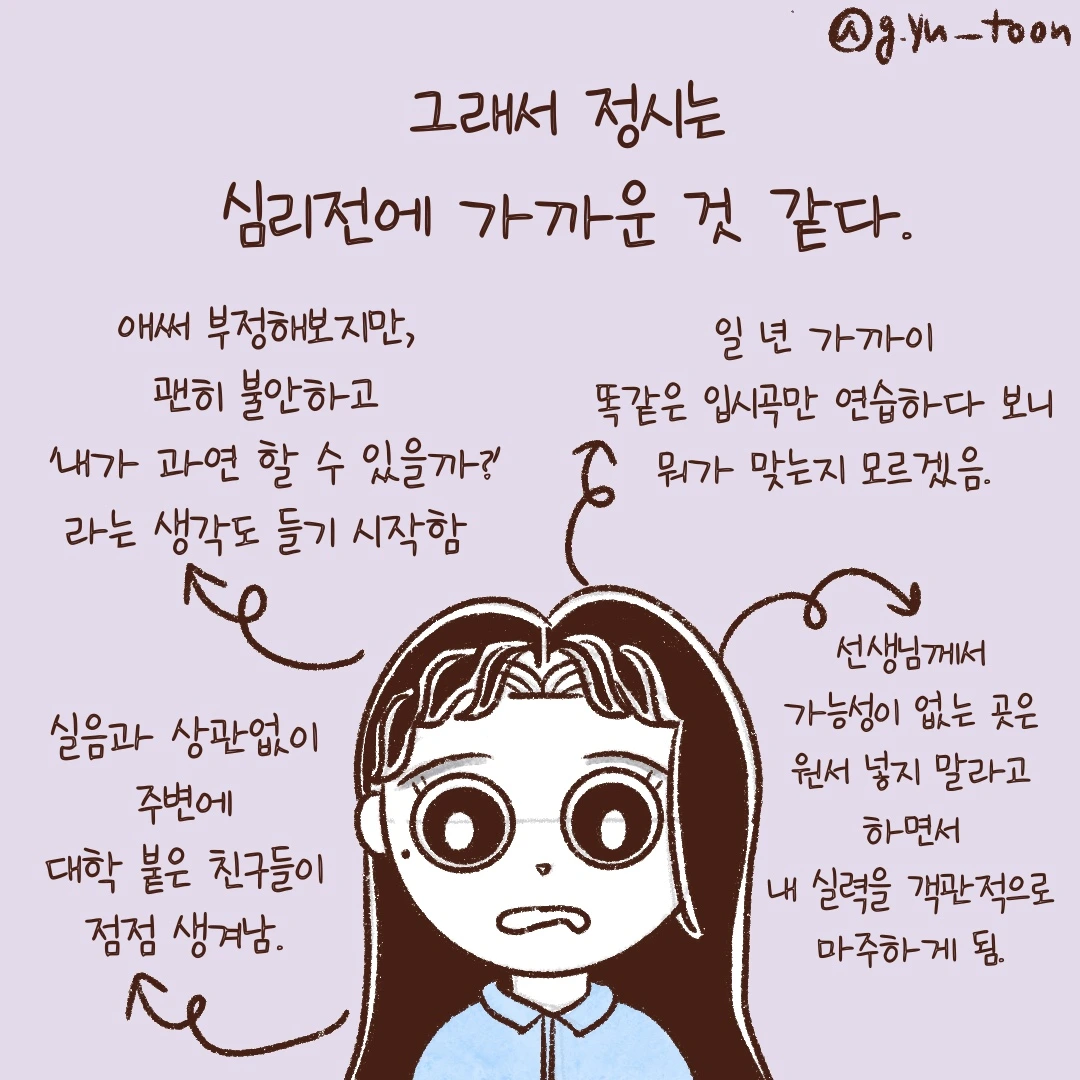 @g.yu_toon
그래서 정시는
심리전에 가까운 것 같다.
애써 부정해보지만,
괜히 불안하고
'내가 과연 할 수 있을까?'
라는 생각도 들기 시작함
일 년 가까이
똑같은 입시곡만 연습하다 보니
뭐가 맞는지 모르겠음.
선생님께서
가능성이 없는 곳은
원서 넣지 말라고
하면서
내 실력을 객관적으로
마주하게 됨.
실음과 상관없이
주변에
대학 붙은 친구들이
점점 생겨남.